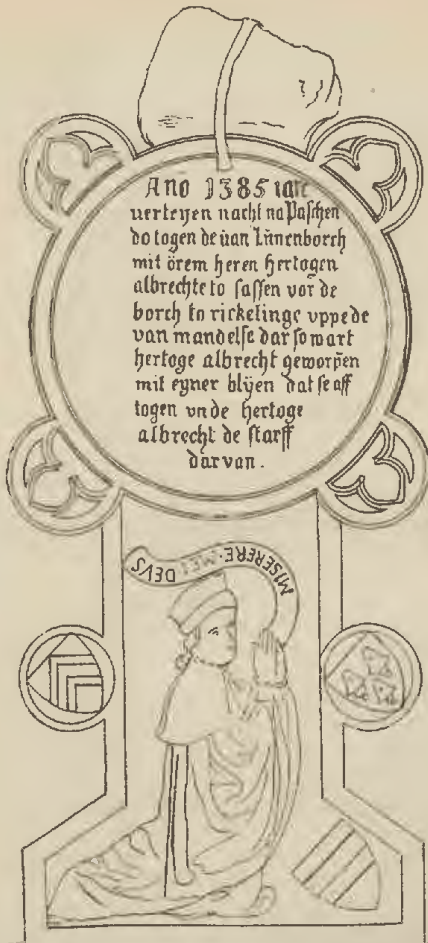 Ano 1385 iare
uerteyen nacht na Paschen
do togen de uan Lünenborch
mit örem heren hertogen
albrechte to sassen vor de
borch to rickelinge vppe de
van mandelse dar so wart
hertoge albrecht geworpen
mit eyner blyen dat se aff
togen vnde hertoge
albrecht de starff
darvan .
MISERERE · MEI DEVS